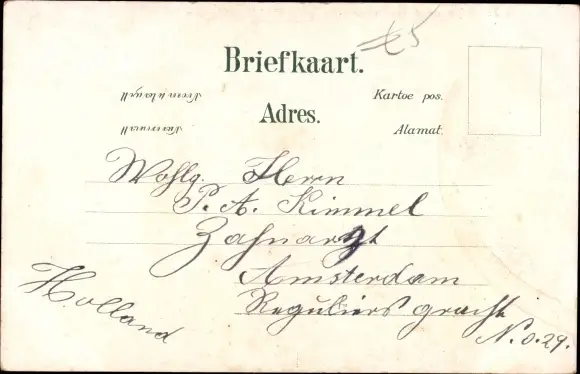 £5
Briefkaart.
Kartoe pos.
Adres.
Alamat.
Wohlg. Herrn
P. A. Kimmel
Zahnarzt
Amsterdam
Reguliers gracht
N.o.29.
Holland